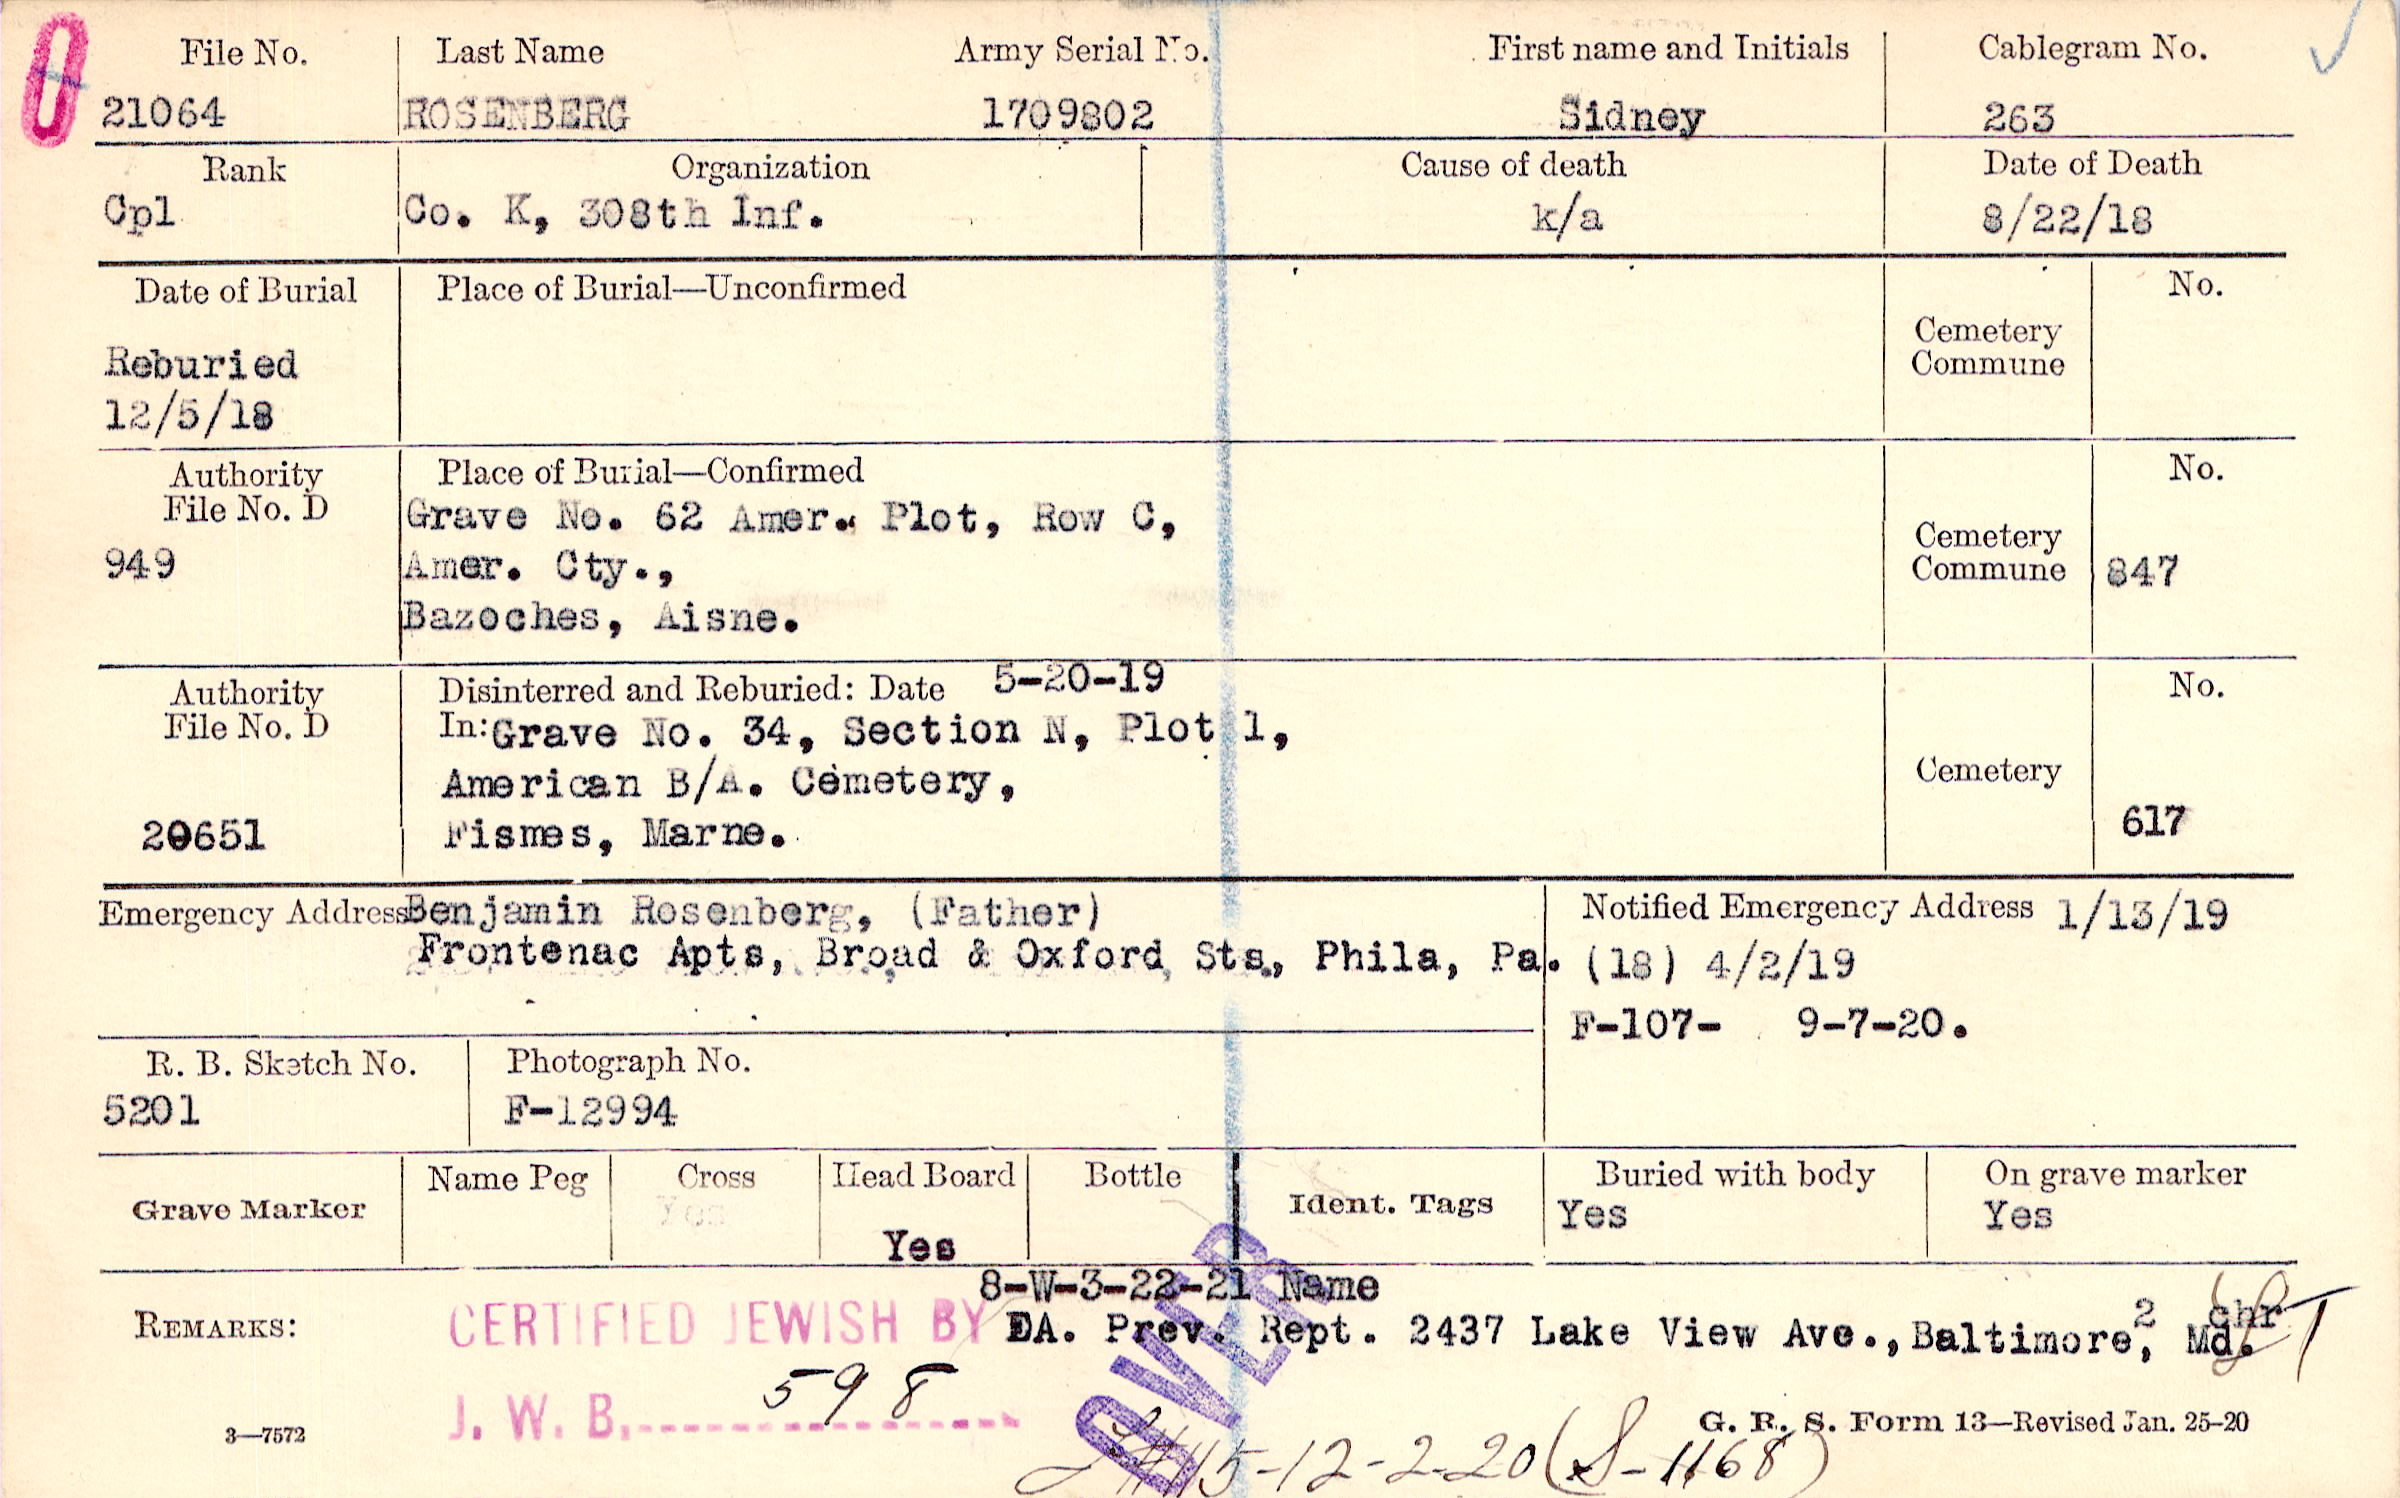 File No. Last Name Army Serial No. First name and Initials Cablegram No.
21064 ROSENBERG 1709802 Sidney 263
Rank Organization Cause of death Date of Death
Cpl Co. K, 308th Inf. k/a 8/22/18
Date of Burial Place of Burial—Unconfirmed No.
Cemetery
Commune
Reburied
12/5/18
Authority Place of Burial—Confirmed No.
File No. D Grave No. 62 Amer. Plot, Row C,
949 Amer. Cty., Cemetery
Commune 847
Bazoches, Aisne.
Authority Disinterred and Reburied: Date 5-20-19 No.
File No. D In: Grave No. 34, Section N, Plot 1,
American B/A. Cemetery, Cemetery
20651 Fismes, Marne. 617
Emergency Address Benjamin Rosenberg, (Father) Notified Emergency Address 1/13/19
Frontenac Apts, Broad & Oxford Sts., Phila, Pa. (18) 4/2/19
F-107- 9-7-20.
R. B. Sketch No. Photograph No.
5201 F-12994
Grave Marker Name Peg Cross Head Board Bottle Ident. Tags Buried with body On grave marker
Yes Yes Yes Yes
8-W-3-22-21 Name
REMARKS: CERTIFIED JEWISH BY EA. Prev. Rept. 2437 Lake View Ave., Baltimore, Md.
2 chr
J. W. B. 598
OVER
3—7572 G. R. S. Form 13—Revised Jan. 25-20
15-12-2-20 (S-1168)